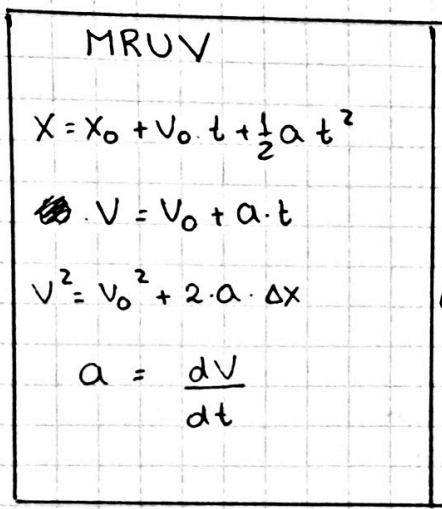 MRUV
X = X₀ + V₀. t + ½ a t²
. V = V₀ + a·t
V² = V₀² + 2·a·ΔX
a = dV/dt